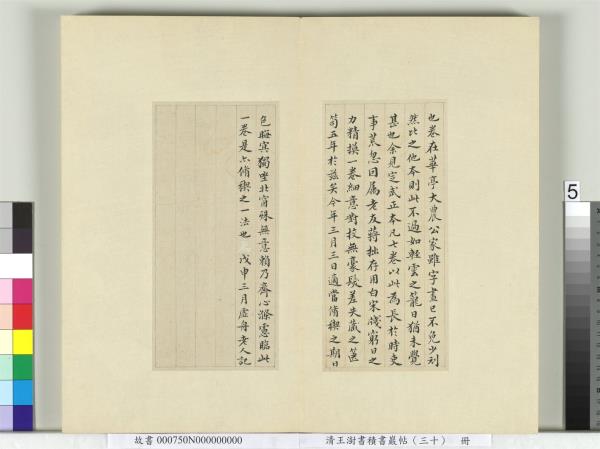 也卷在華亭大農公家雖字畫已不免少刓
然比之他本則此不過如輕雲之籠日猶未覺
甚也余見定武正本凡七卷以此為長於時吏
事荒忽因属老友蔣拙存用白宋牋窮日之
力精摸一卷細意對校無豪髮差失藏之篋
笥五年於兹矣今年三月三日適當脩禊之期日
色晦冥獨坐北窗殊無意賴乃齊心滌慮臨此
一卷是亦脩禊之一法也 戊申三月虛舟老人記
5
故書 000750N000000000
清王澍書積書巖帖（三十） 冊